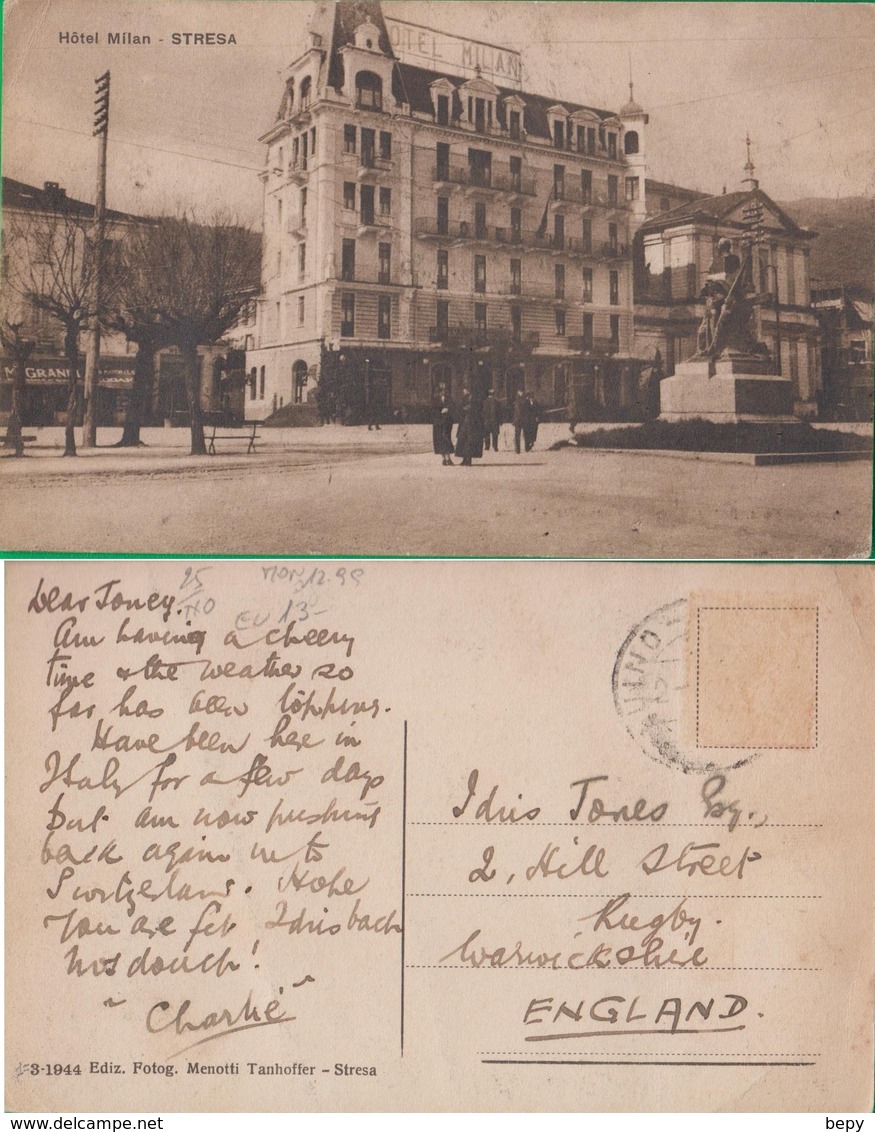 Hôtel Milan - STRESA
HOTEL MILAN
M. GRANDI
Dear Joney.
Am having a cheery
time & the weather so
far has been topping.
Have been here in
Italy for a few days
but am now pushing
back again into
Switzerland. Hope
you are fit Idris bach
"Charlie"
3-1944 Ediz. Fotog. Menotti Tanhoffer - Stresa
Idris Jones Esq.,
2, Hill Street
Rugby.
Warwickshire
ENGLAND.
www.delcampe.net
bepy